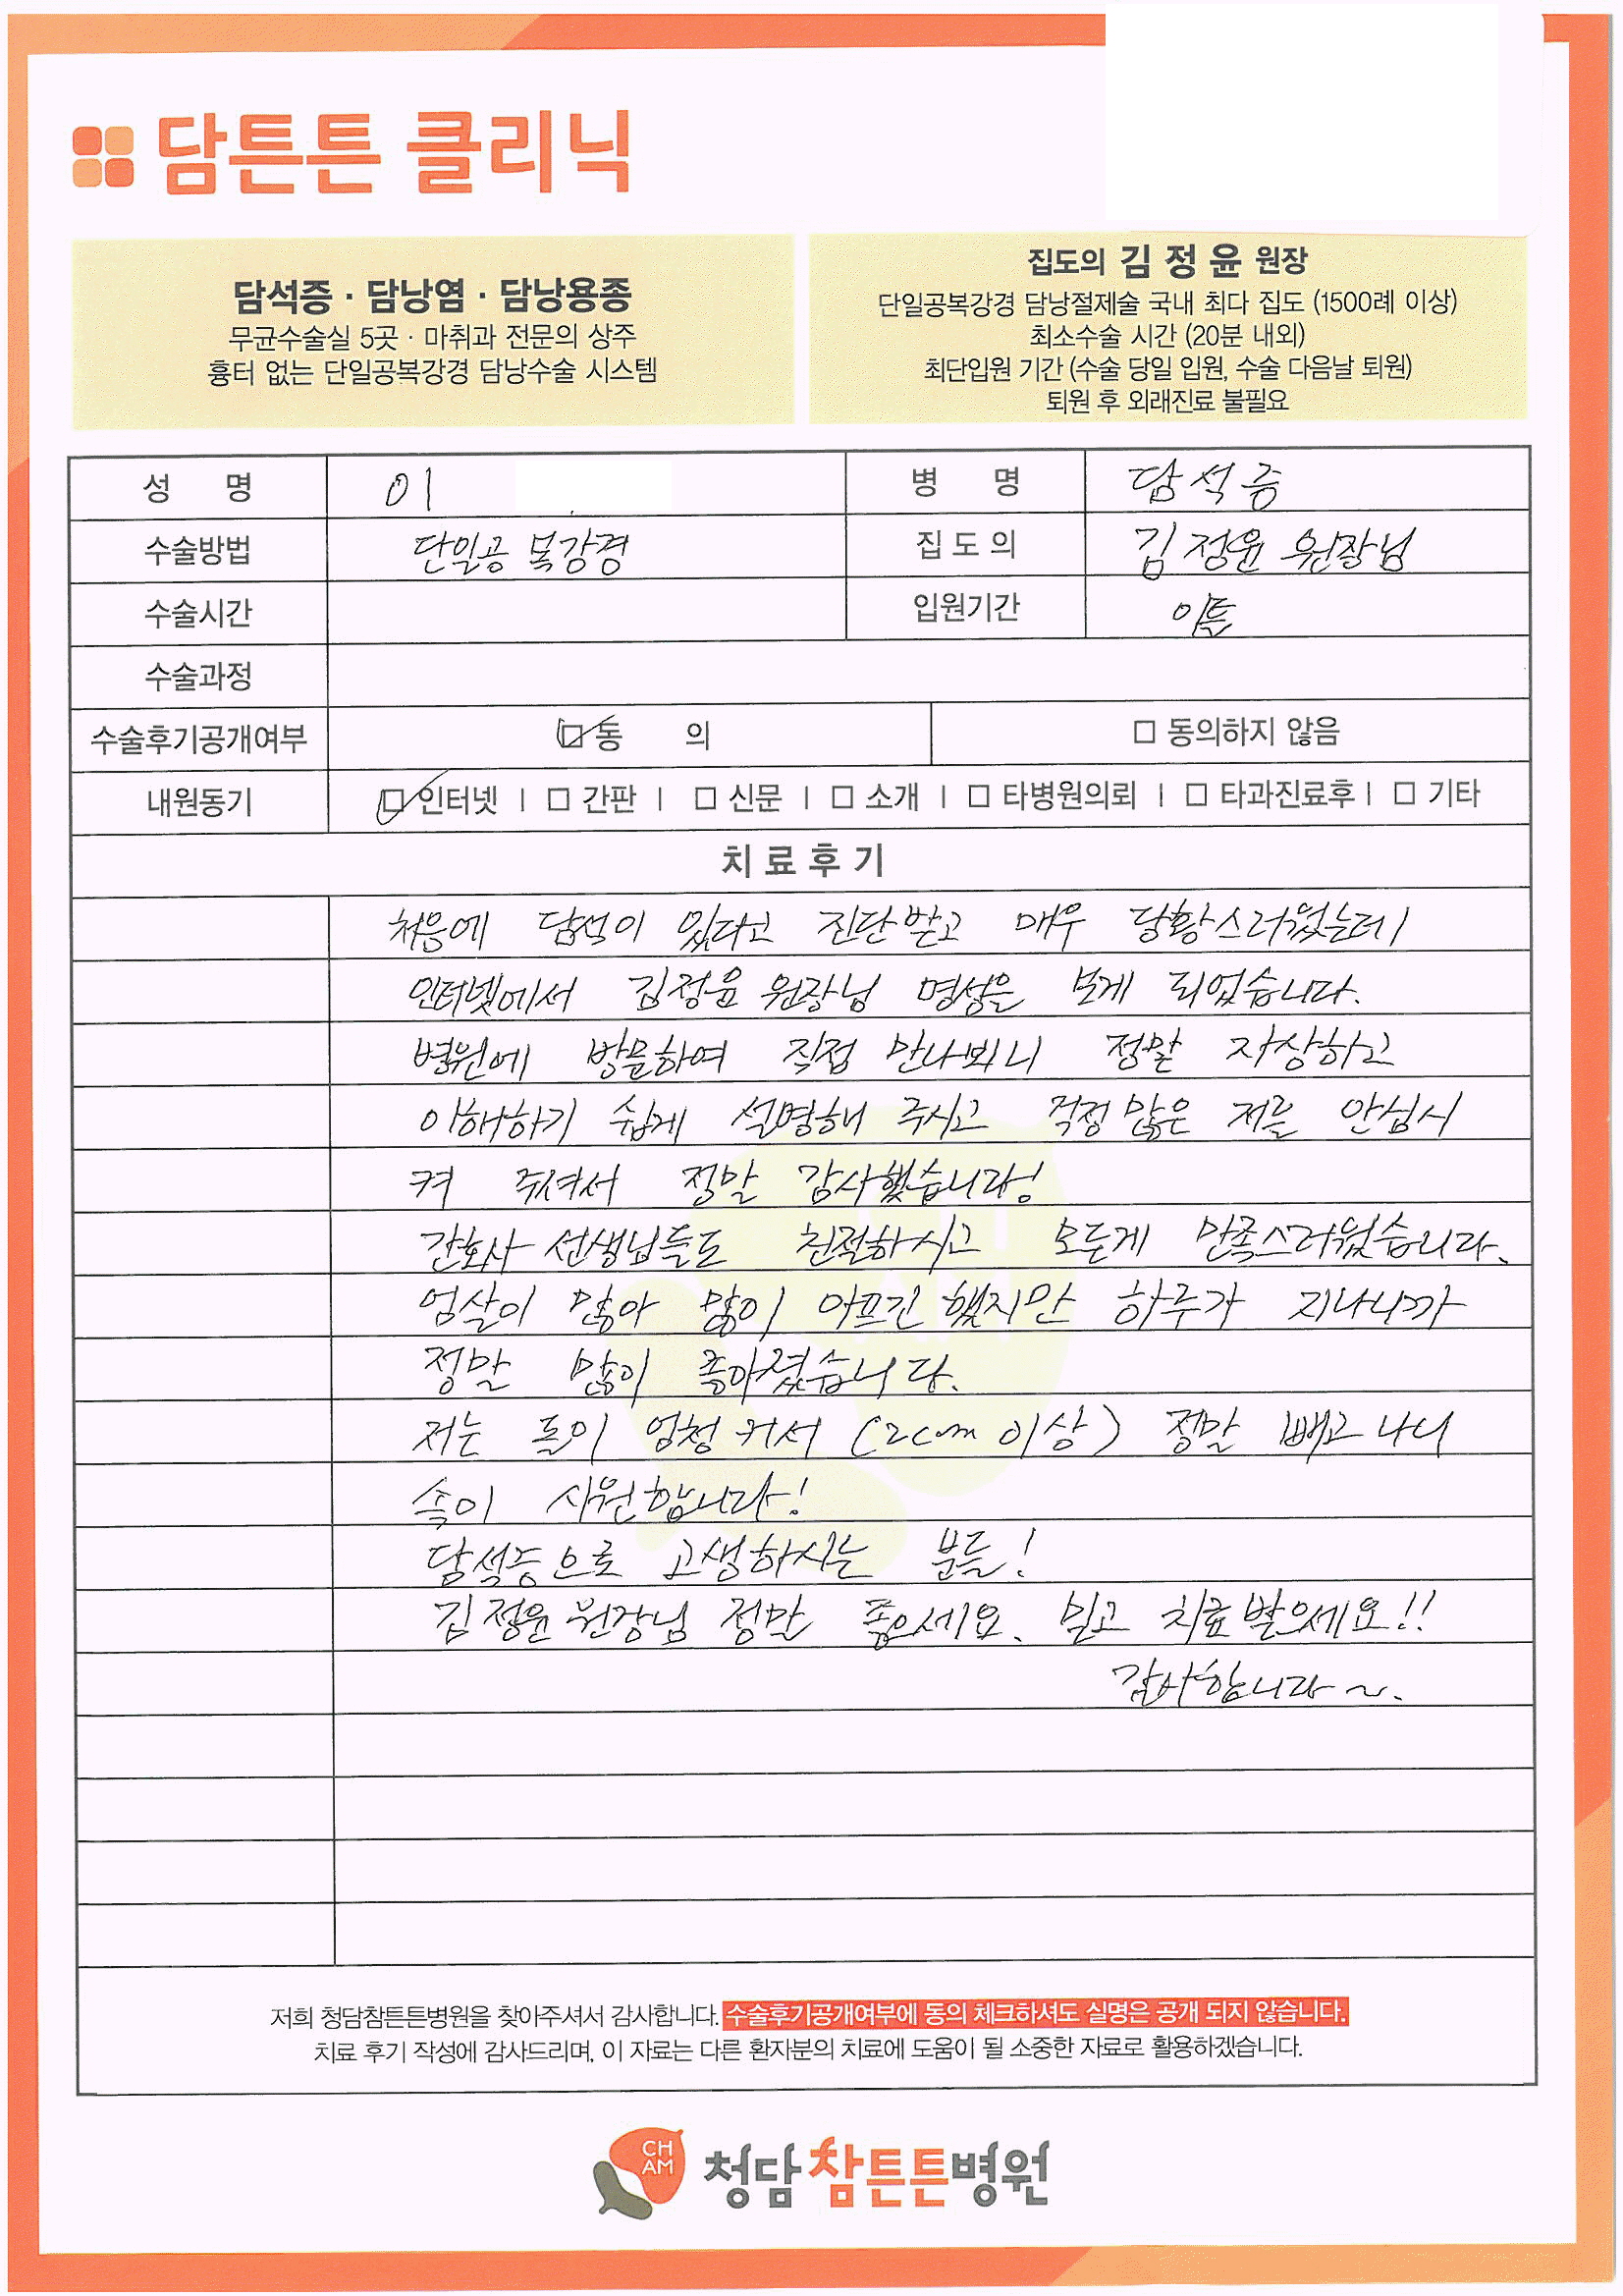 담튼튼 클리닉
담석증 · 담낭염 · 담낭용종
무균수술실 5곳 · 마취과 전문의 상주
흉터 없는 단일공복강경 담낭수술 시스템
집도의 김정윤 원장
단일공복강경 담낭절제술 국내 최다 집도 (1500례 이상)
최소수술 시간 (20분 내외)
최단입원 기간 (수술 당일 입원, 수술 다음날 퇴원)
퇴원 후 외래진료 불필요
성 명 이 병 명 담석증
수술방법 단일공 복강경 집도의 김정윤 원장님
수술시간 입원기간 이틀
수술과정
수술후기공개여부 ☑ 동 의 □ 동의하지 않음
내원동기 ☑ 인터넷 | □ 간판 | □ 신문 | □ 소개 | □ 타병원의뢰 | □ 타과진료후 | □ 기타
치료후기
처음에 담석이 있다고 진단받고 매우 당황스러웠는데
인터넷에서 김정윤 원장님 명성을 보게 되었습니다.
병원에 방문하여 직접 만나뵈니 정말 자상하고
이해하기 쉽게 설명해 주시고 걱정 많은 저를 안심시
켜 주셔서 정말 감사했습니다!
간호사 선생님들도 친절하시고 모든게 만족스러웠습니다.
엄살이 많아 많이 아프긴 했지만 하루가 지나니까
정말 많이 좋아졌습니다.
저는 돌이 엄청 커서 (2cm 이상) 정말 빼고 나니
속이 시원합니다!
담석증으로 고생하시는 분들!
김정윤 원장님 정말 좋으세요. 믿고 치료받으세요!!
감사합니다~.
저희 청담참튼튼병원을 찾아주셔서 감사합니다. 수술후기공개여부에 동의 체크하셔도 실명은 공개 되지 않습니다.
치료 후기 작성에 감사드리며, 이 자료는 다른 환자분의 치료에 도움이 될 소중한 자료로 활용하겠습니다.
CH
AM
청담참튼튼병원